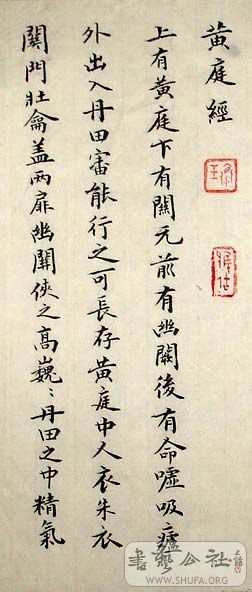 黄庭經
上有黄庭下有關元前有幽關後有命噓吸廬
外出入丹田審能行之可長存黄庭中人衣朱衣
關門壯龠盖兩扉幽關俠之高巍〻丹田之中精氣
書藝公社
WWW.SHUFA.ORG